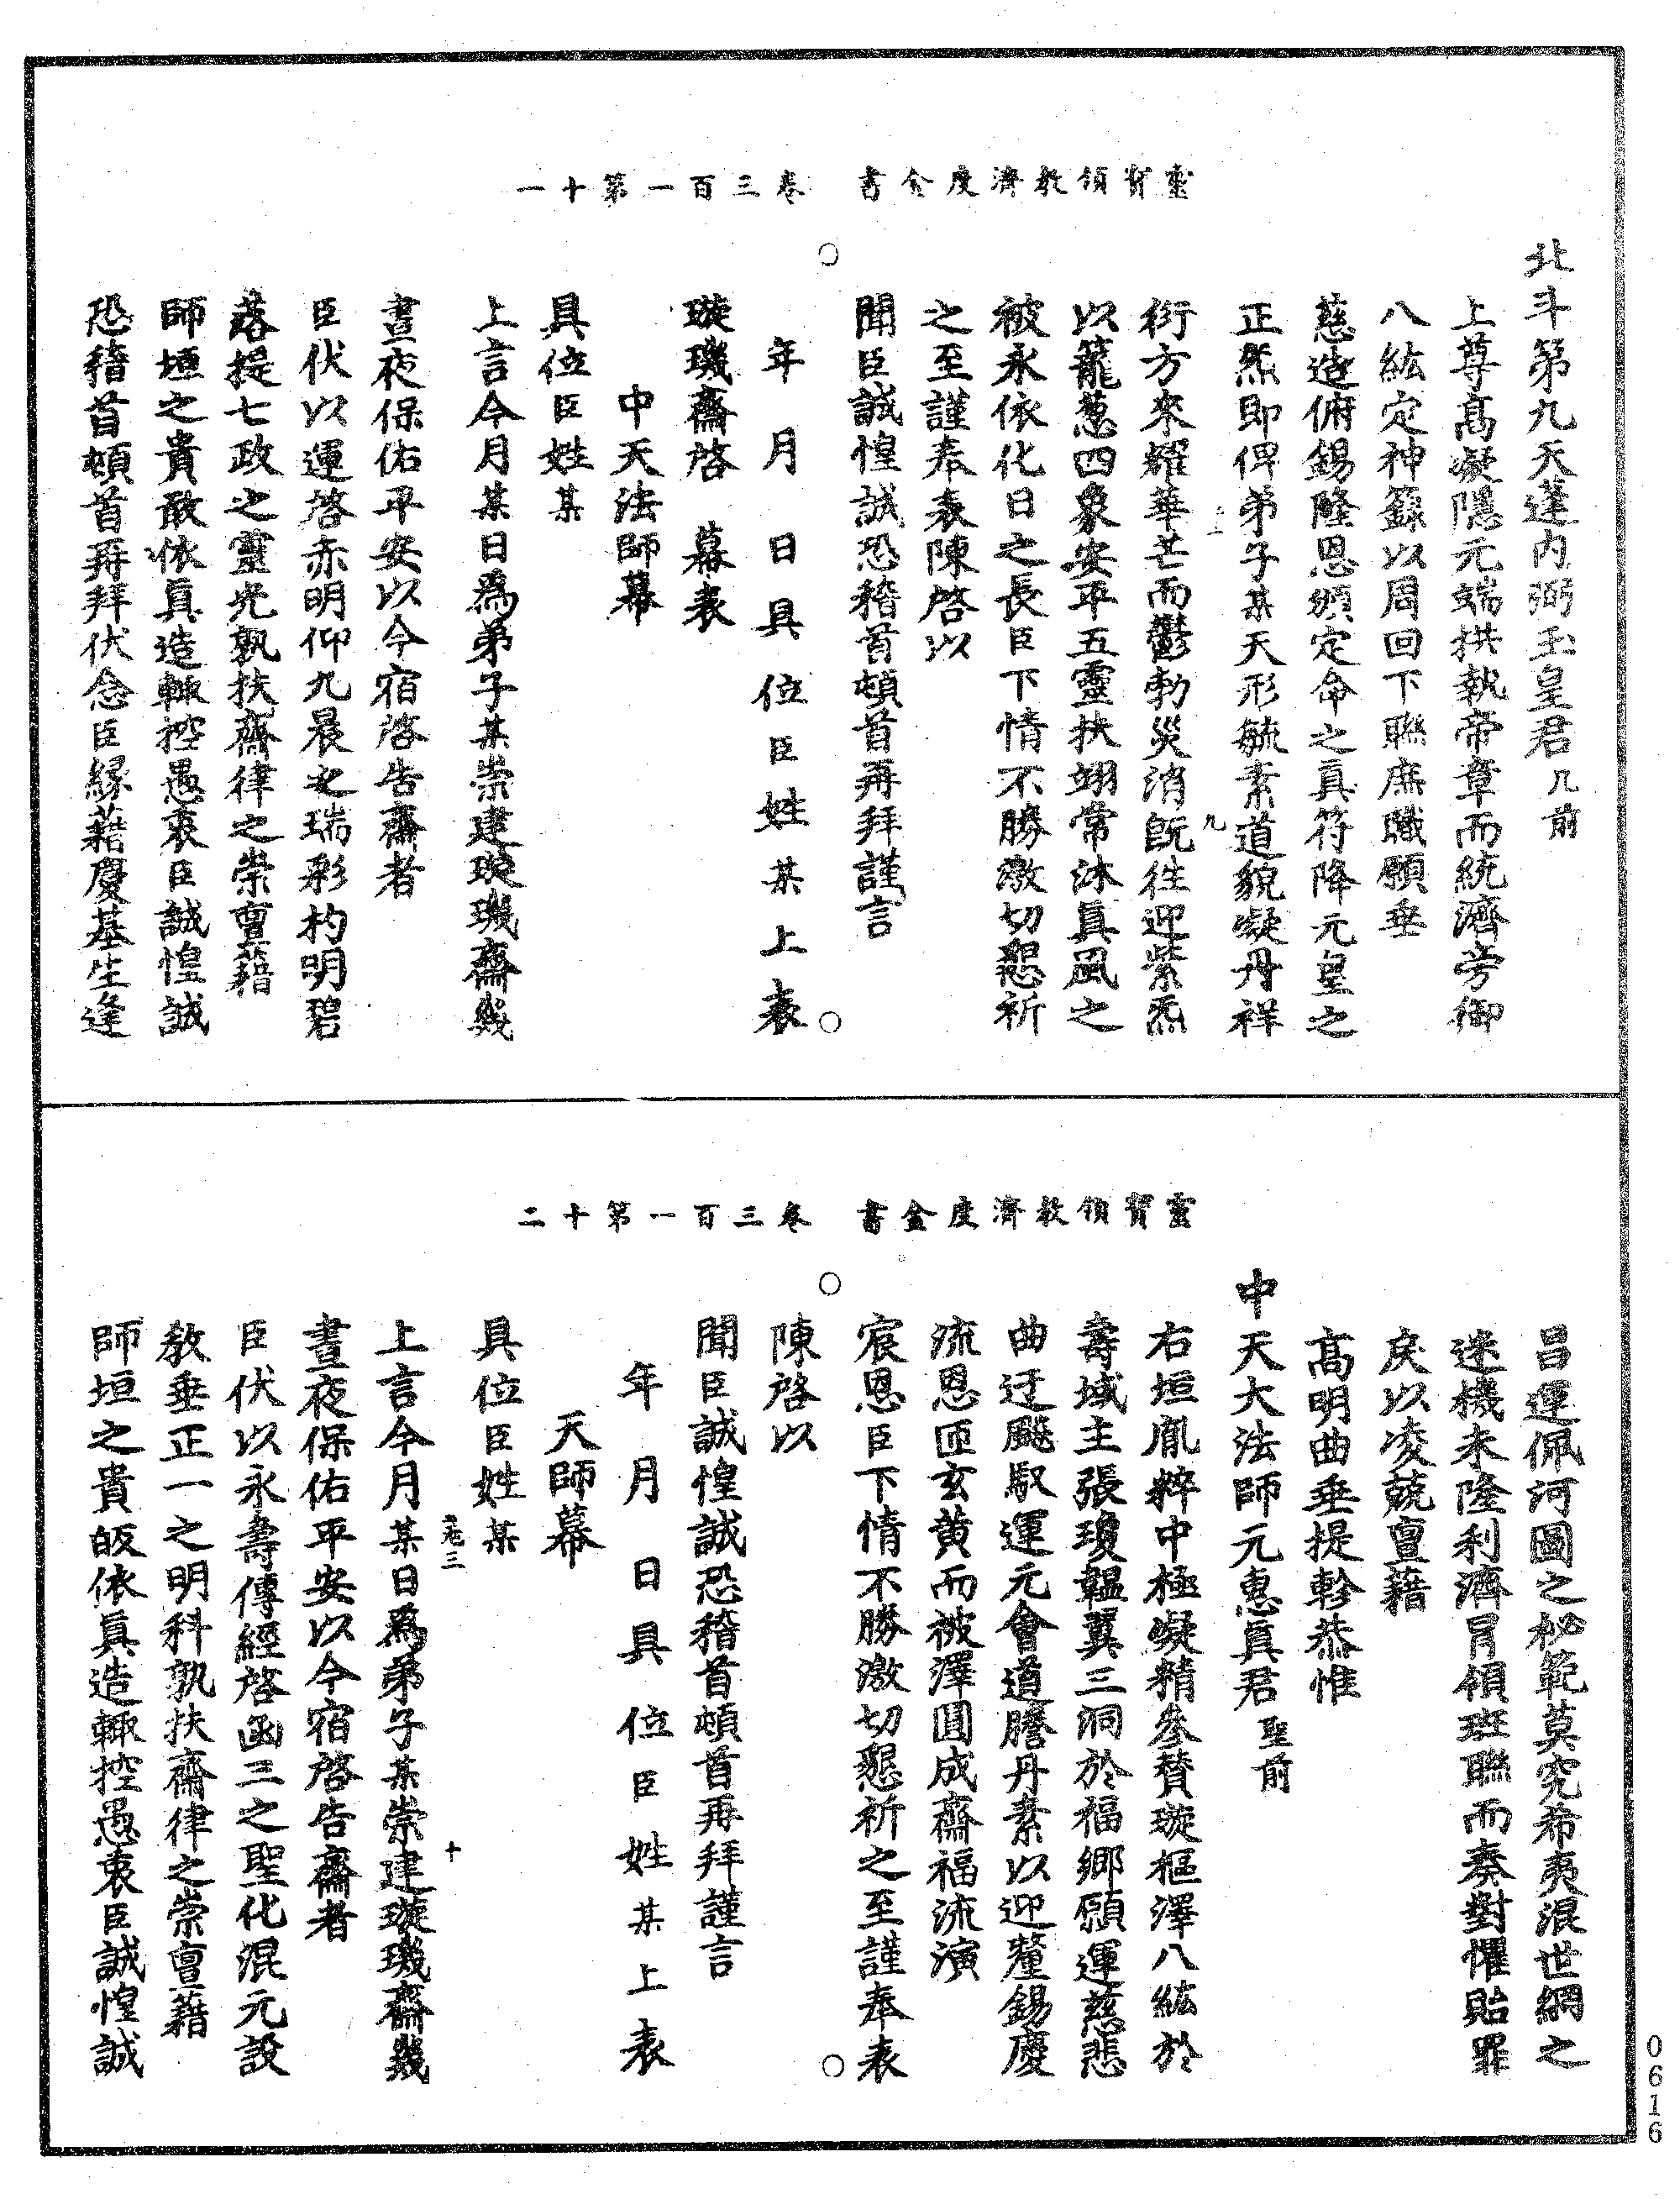 靈寶領教濟度金書　卷三百一第十一
北斗第九天蓬內弼玉皇君几前
上尊高凝隱元端拱執帝章而統濟旁御
八紘定神籙以周回下聯庶職願垂
慈造俯錫隆恩頒定命之眞符降元皇之
正炁即俾弟子某天形毓素道貌凝丹祥
九
衍方來耀華芒而鬱勃災消旣往迎紫炁
以籠葱四象安平五靈扶翊常沐眞風之
被永依化日之長臣下情不勝激切懇祈
之至謹奉表陳啓以
聞臣誠惶誠恐稽首頓首再拜謹言
年月日具位臣姓某上表
璇璣齋啓　幕表
中天法師幕
具位臣姓某
上言今月某日爲弟子某崇建璇璣齋幾
晝夜保佑平安以今宿啓告齋者
臣伏以運啓赤明仰九晨之瑞彩杓明碧
落提七政之靈光孰扶齋律之崇亶藉
師垣之貴敢依眞造輒控愚衷臣誠惶誠
恐稽首頓首再拜伏念臣緣藉慶基生逢
靈寶領教濟度金書　卷三百一第十二
昌運佩河圖之祕範莫究希夷混世網之
迷機未隆利濟冐領班聯而奏對懼貽罪
戾以凌兢亶藉
高明曲垂提軫恭惟
中天大法師元惠眞君聖前
右垣胤粹中極凝精參贊璇樞澤八紘於
壽域主張瓊韞翼三洞於福鄉願運慈悲
曲迂飈馭運元會道謄丹素以迎釐錫慶
流恩匝玄黃而被澤圓成齋福流演
宸恩臣下情不勝激切懇祈之至謹奉表
陳啓以
聞臣誠惶誠恐稽首頓首再拜謹言
年月日具位臣姓某上表
天師幕
具位臣姓某
卷三　十
上言今月某日爲弟子某崇建璇璣齋幾
晝夜保佑平安以今宿啓告齋者
臣伏以永壽傳經啓函三之聖化混元設
教垂正一之明科孰扶齋律之崇亶藉
師垣之貴皈依眞造輒控愚衷臣誠惶誠
0616